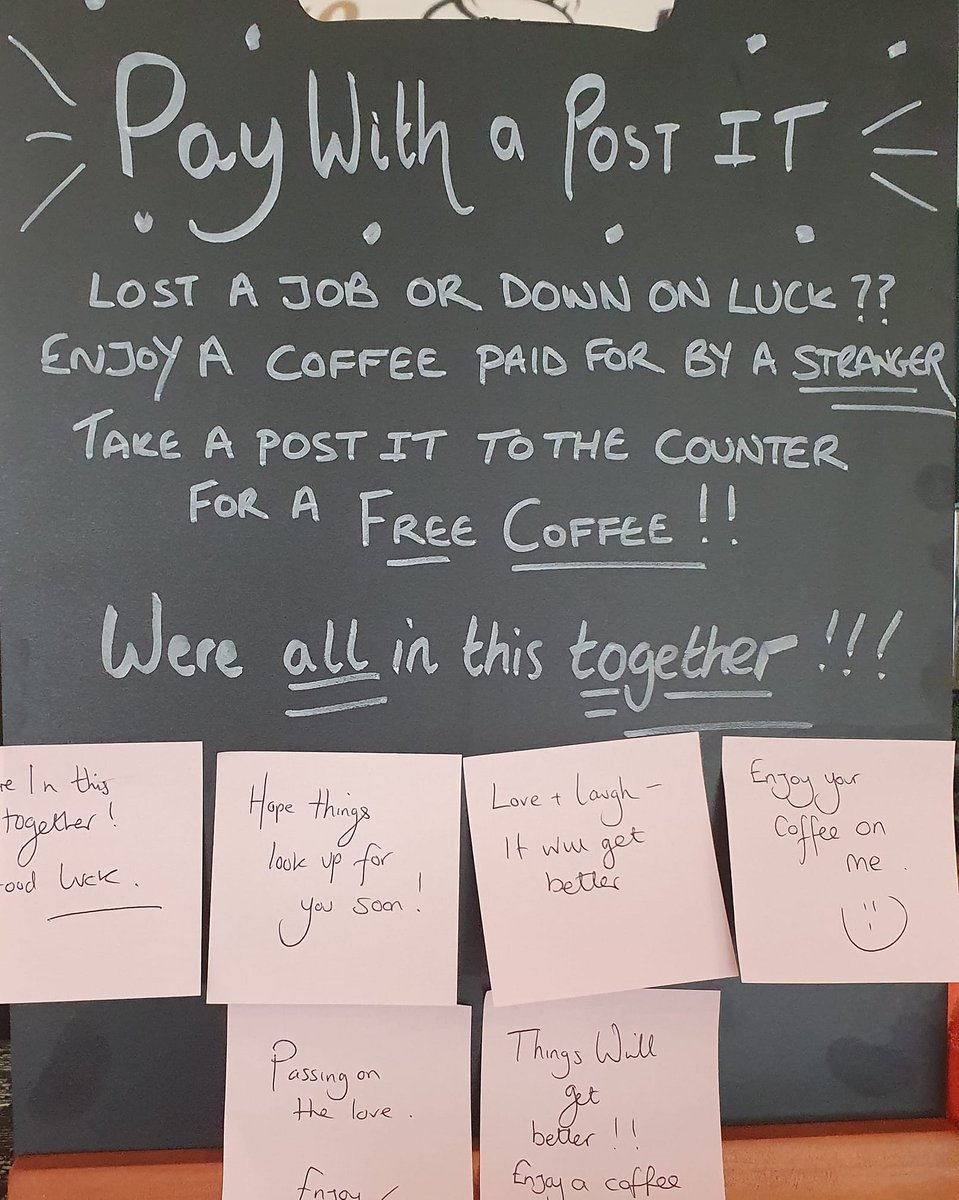 Pay With a Post IT
LOST A JOB OR DOWN ON LUCK ??
ENJOY A COFFEE PAID FOR BY A STRANGER
TAKE A POST IT TO THE COUNTER
FOR A FREE COFFEE !!
Were all in this together !!!
re In this
together!
ood luck.
Hope things
look up for
you soon!
Love + laugh -
It will get
better
Enjoy your
Coffee on
me.
Passing on
the love.
Enjoy
Things Will
get
better !!
Enjoy a coffee